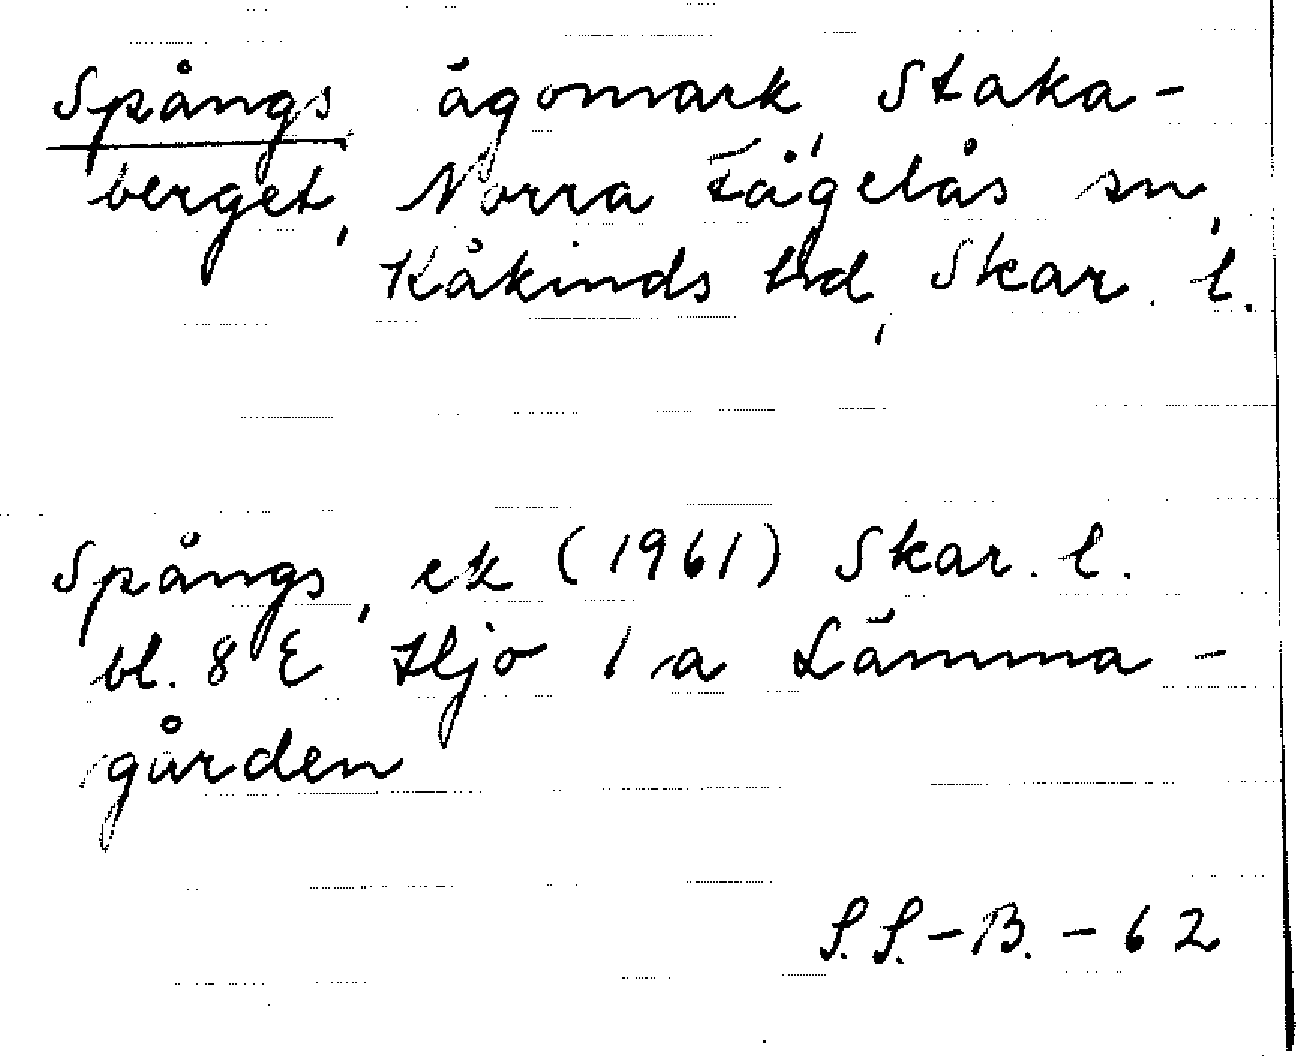 Spångs ägomark, Staka-
berget, Norra Fågelås sn,
Kåkinds hd, Skar. l.
Spångs, ek (1961) Skar. l.
bl. 8 E Hjo 1 a Lämma-
gården
S.S.-B. - 62